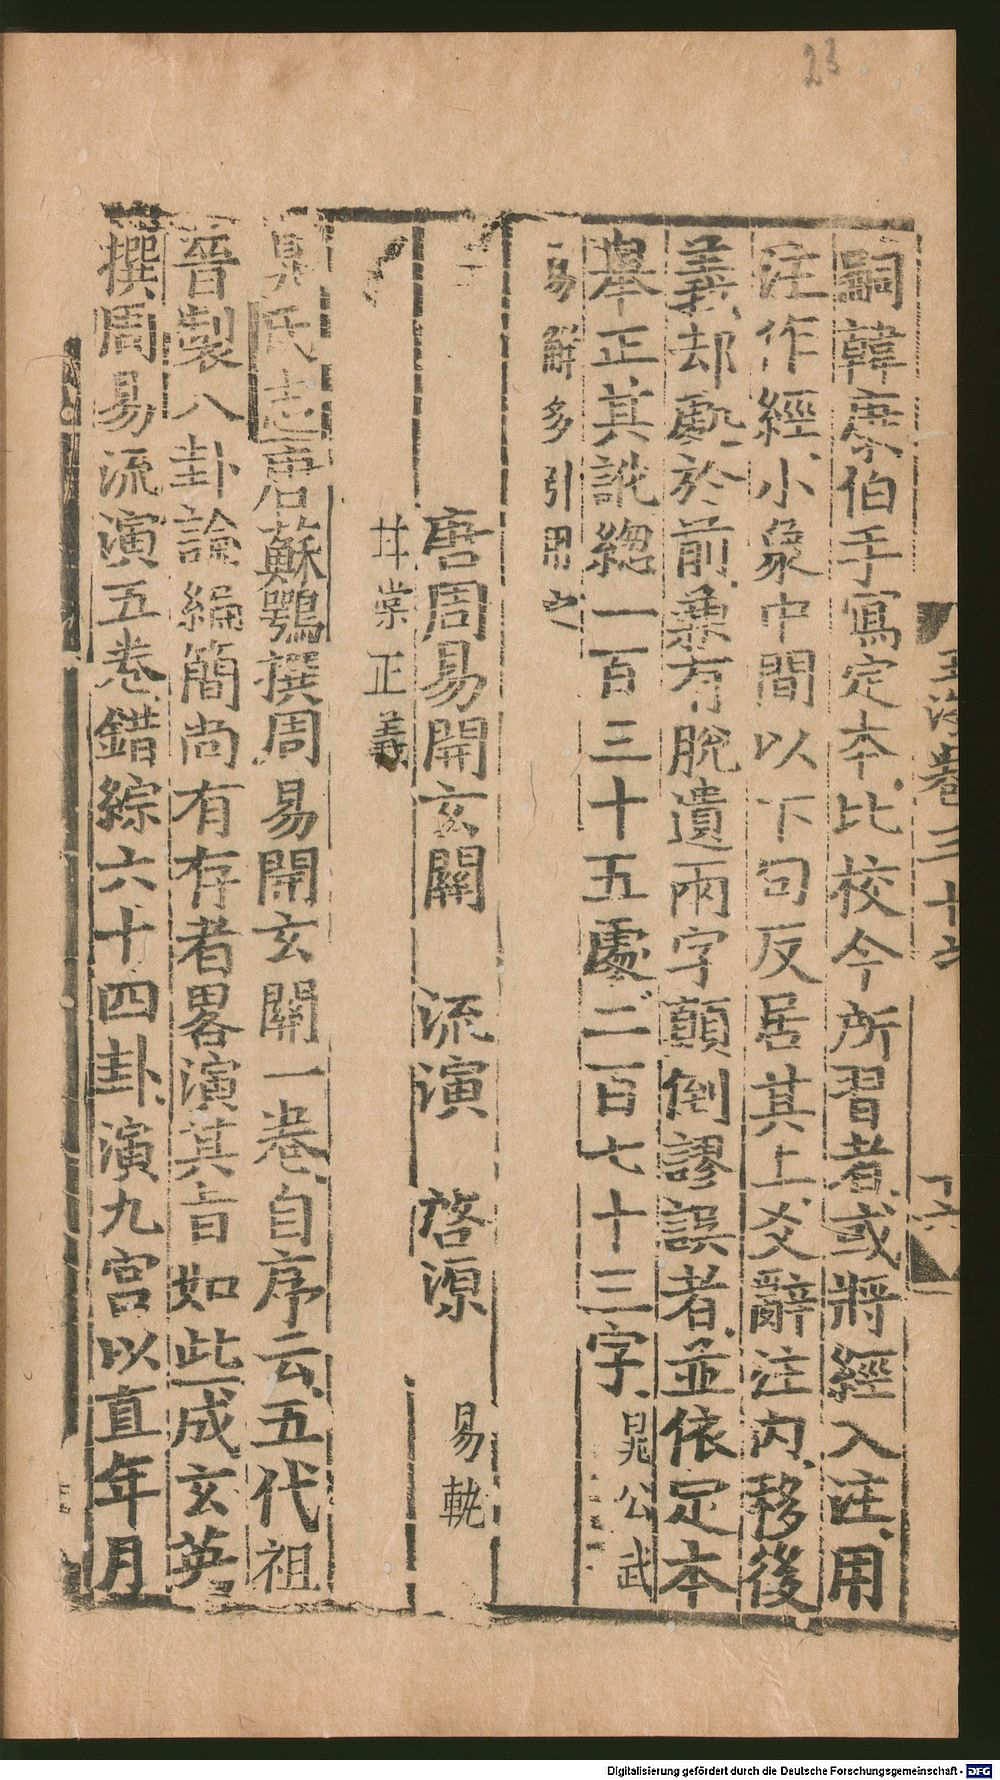 23
玉海卷三十六
十六
嗣韓康伯手寫定本比校今所習者或將經入注用
注作經小象中間以下句反居其上爻辭注內移後
義却處於前兼有脫遺兩字顛倒謬誤者並依定本
舉正其訛總一百三十五處二百七十三字晁公武
易解多引用之
唐周易開玄關 流演 啓源 易軌
甘棠正義
晁氏志唐蘇鶚撰周易開玄關一卷自序云五代祖
晉製八卦論編簡尚有存者畧演其旨如此成玄英
撰周易流演五卷錯綜六十四卦演九宮以直年月
Digitalisierung gefördert durch die Deutsche Forschungsgemeinschaft - DFG